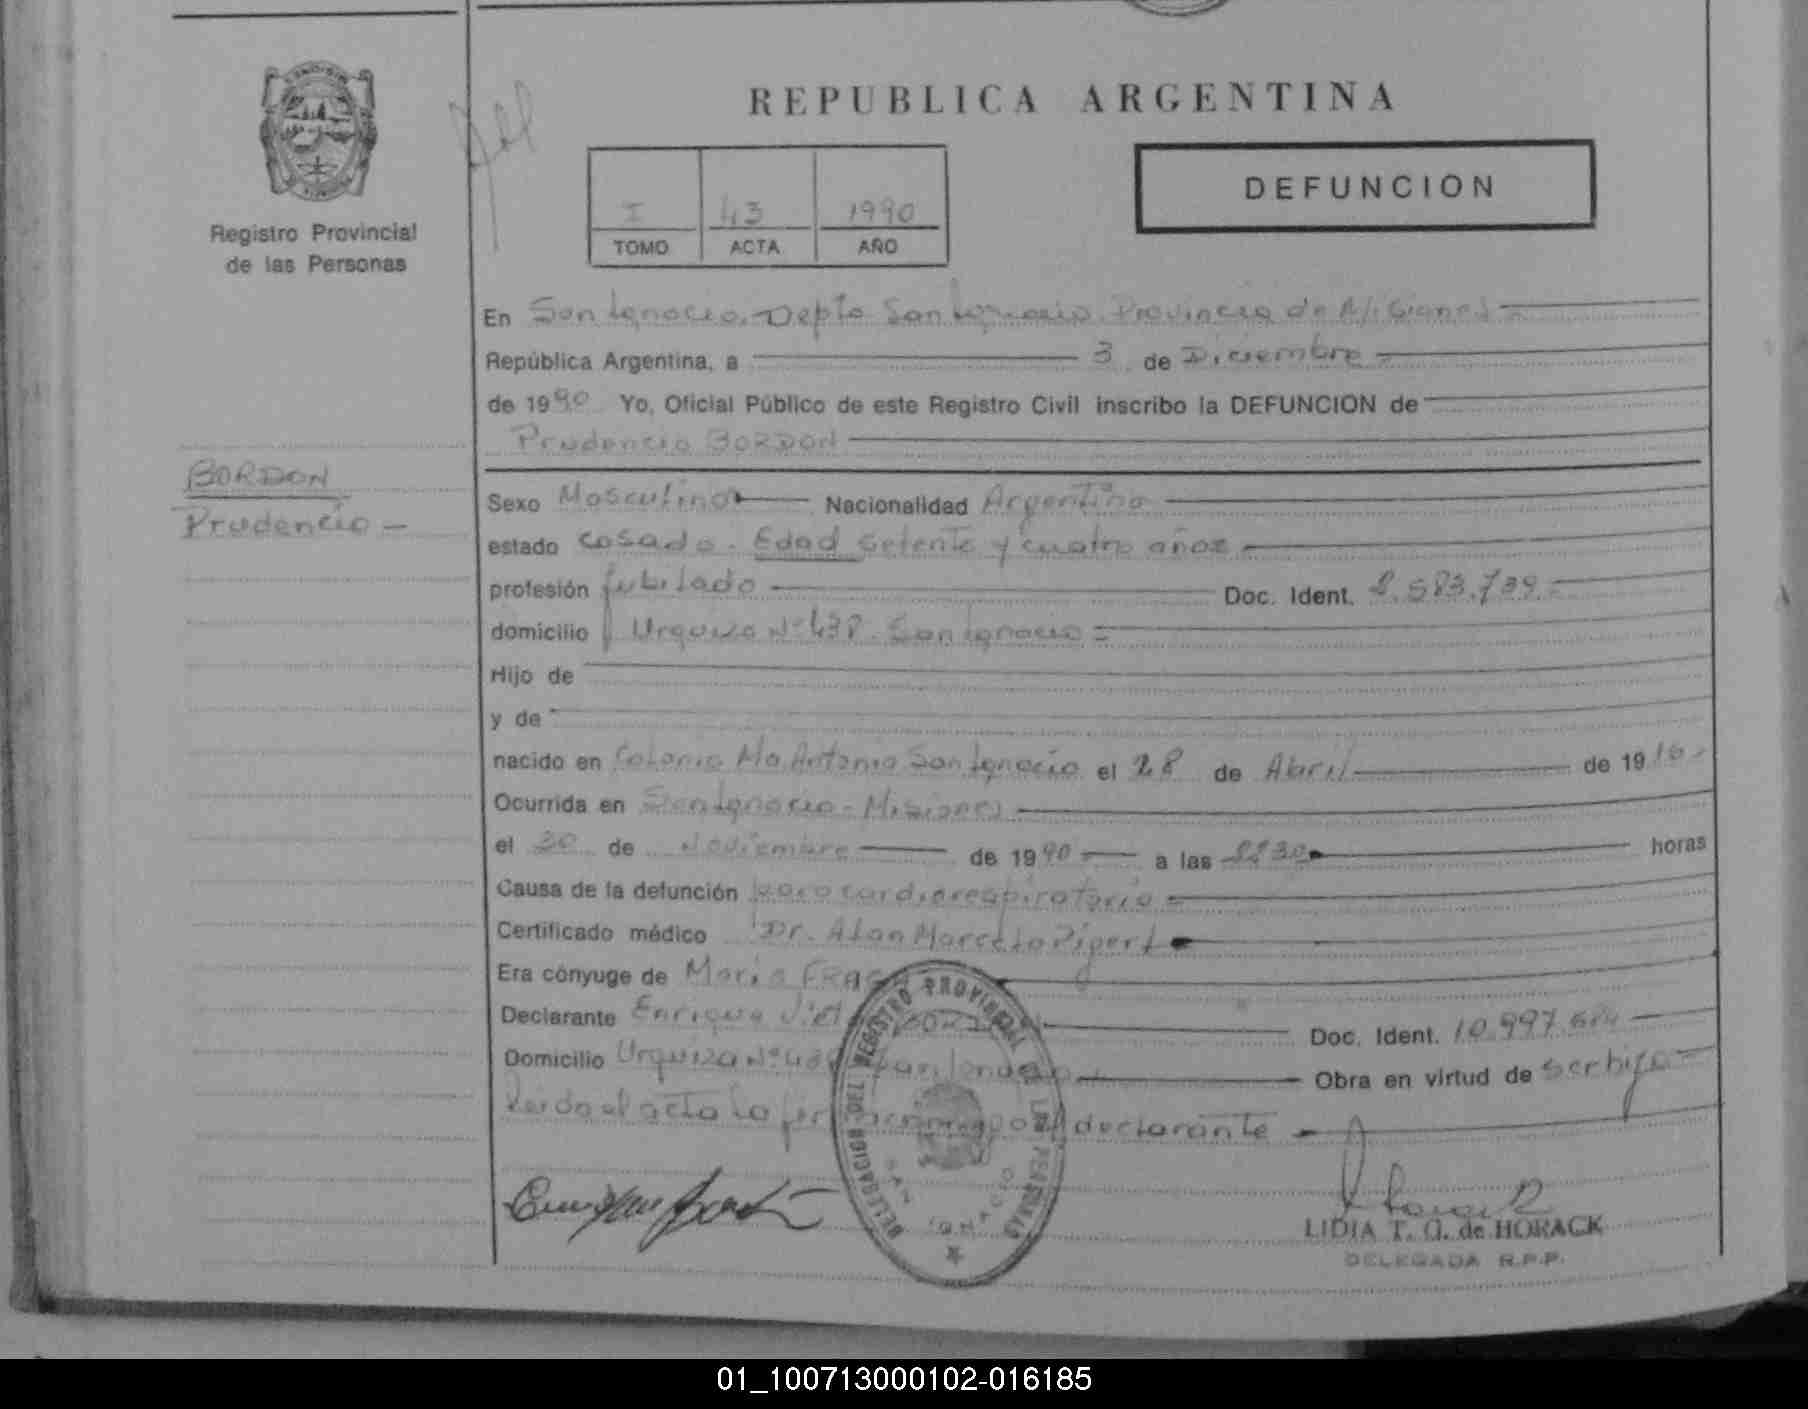 REPUBLICA ARGENTINA
DEFUNCION
Registro Provincial
de las Personas
I 43 1990
TOMO ACTA AÑO
En San Ignacio, Depto San Ignacio Provincia de Misiones
República Argentina, a 3 de Diciembre
de 1990 Yo, Oficial Público de este Registro Civil inscribo la DEFUNCION de
Prudencio BORDON
BORDON
Prudencio
Sexo Masculino Nacionalidad Argentino
estado casado. Edad setenta y cuatro años
profesión jubilado Doc. Ident. 583.739
domicilio Urquiza Nº 438 San Ignacio
Hijo de
y de
nacido en Colonia Ma. Antonia San Ignacio el 28 de Abril de 1916
Ocurrida en San Ignacio - Misiones
el 30 de Noviembre de 1990 a las horas
Causa de la defunción paro cardiorespiratorio
Certificado médico Dr. Alan Marcelo
Era cónyuge de Maria
Declarante Enrique Doc. Ident. 10.997.
Domicilio Urquiza Nº San Ignacio Obra en virtud de ser hijo
Leida el acta la declarante
DELEGACION DEL REGISTRO PROVINCIAL DE LAS PERSONAS
SAN IGNACIO
LIDIA T. G. de HORACK
DELEGADA R.P.P.
01_100713000102-016185